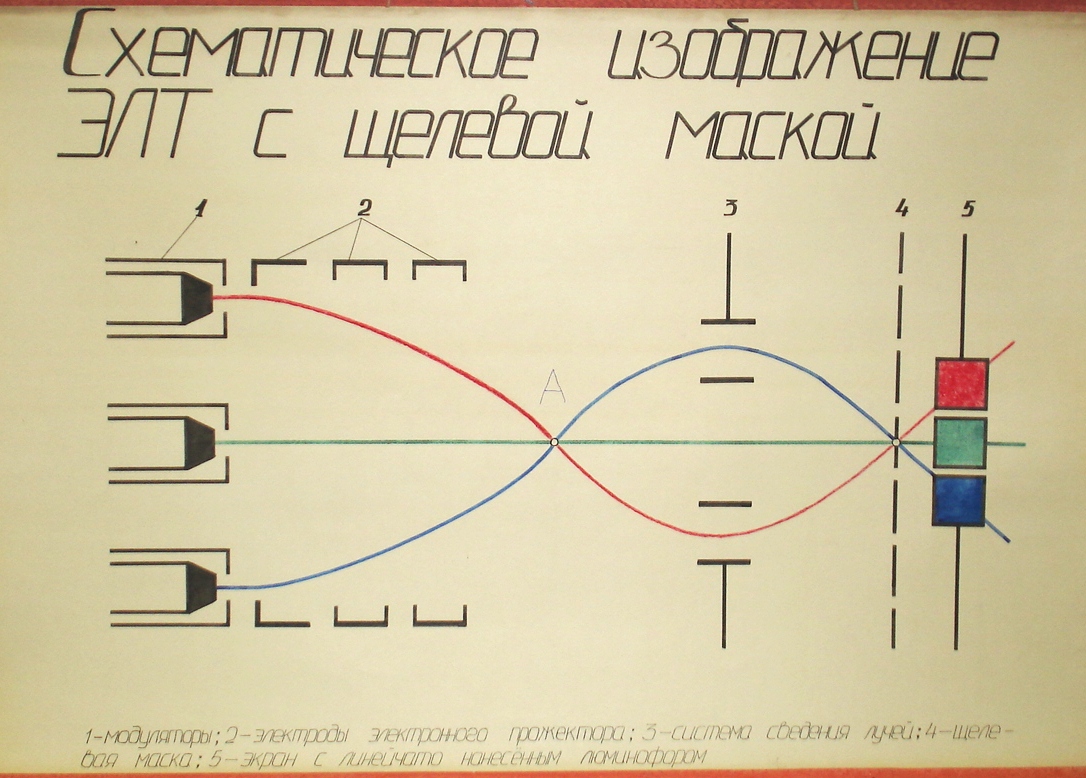 Схематическое изображение
ЭЛТ с щелевой маской
1 2 3 4 5
А
1-модуляторы; 2-электроды электронного прожектора; 3-система сведения лучей; 4-щеле-
вая маска; 5-экран с линейчато нанесённым люминофором